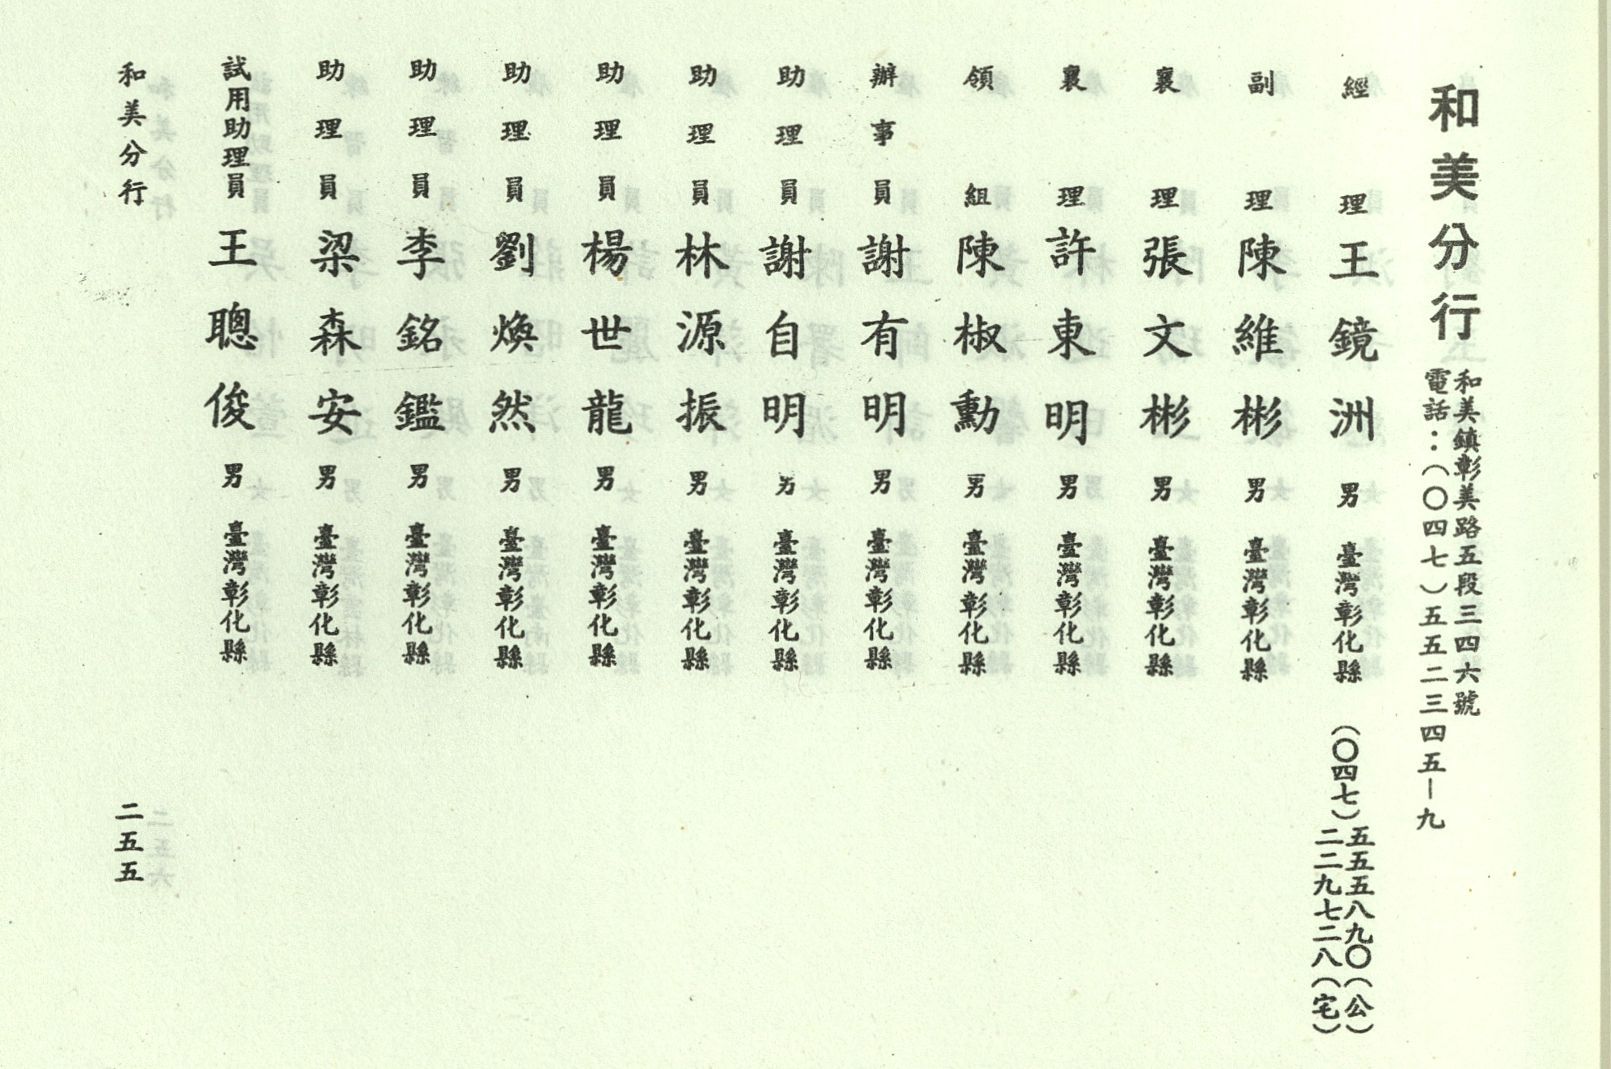 和美分行
和美鎮彰美路五段三四六號
電話：（〇四七）五五二三四五－九
經理 王鏡洲 男 臺灣彰化縣 （〇四七）五五五八九〇（公）
二二九七二八（宅）
副理 陳維彬 男 臺灣彰化縣
襄理 張文彬 男 臺灣彰化縣
襄理 許東明 男 臺灣彰化縣
領組 陳椒勳 男 臺灣彰化縣
辦事員 謝有明 男 臺灣彰化縣
助理員 謝自明 男 臺灣彰化縣
助理員 林源振 男 臺灣彰化縣
助理員 楊世龍 男 臺灣彰化縣
助理員 劉煥然 男 臺灣彰化縣
助理員 李銘鑑 男 臺灣彰化縣
助理員 梁森安 男 臺灣彰化縣
試用助理員 王聰俊 男 臺灣彰化縣
和美分行
二五五